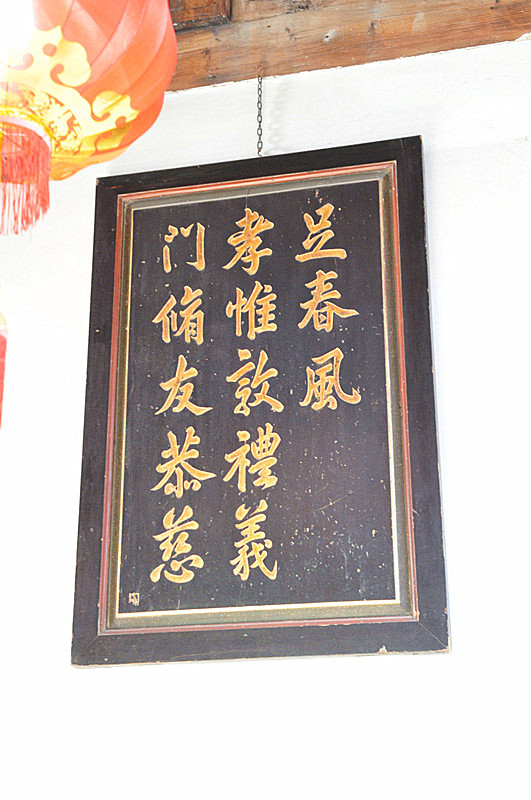 足春風
孝惟敦禮義
門脩友恭慈